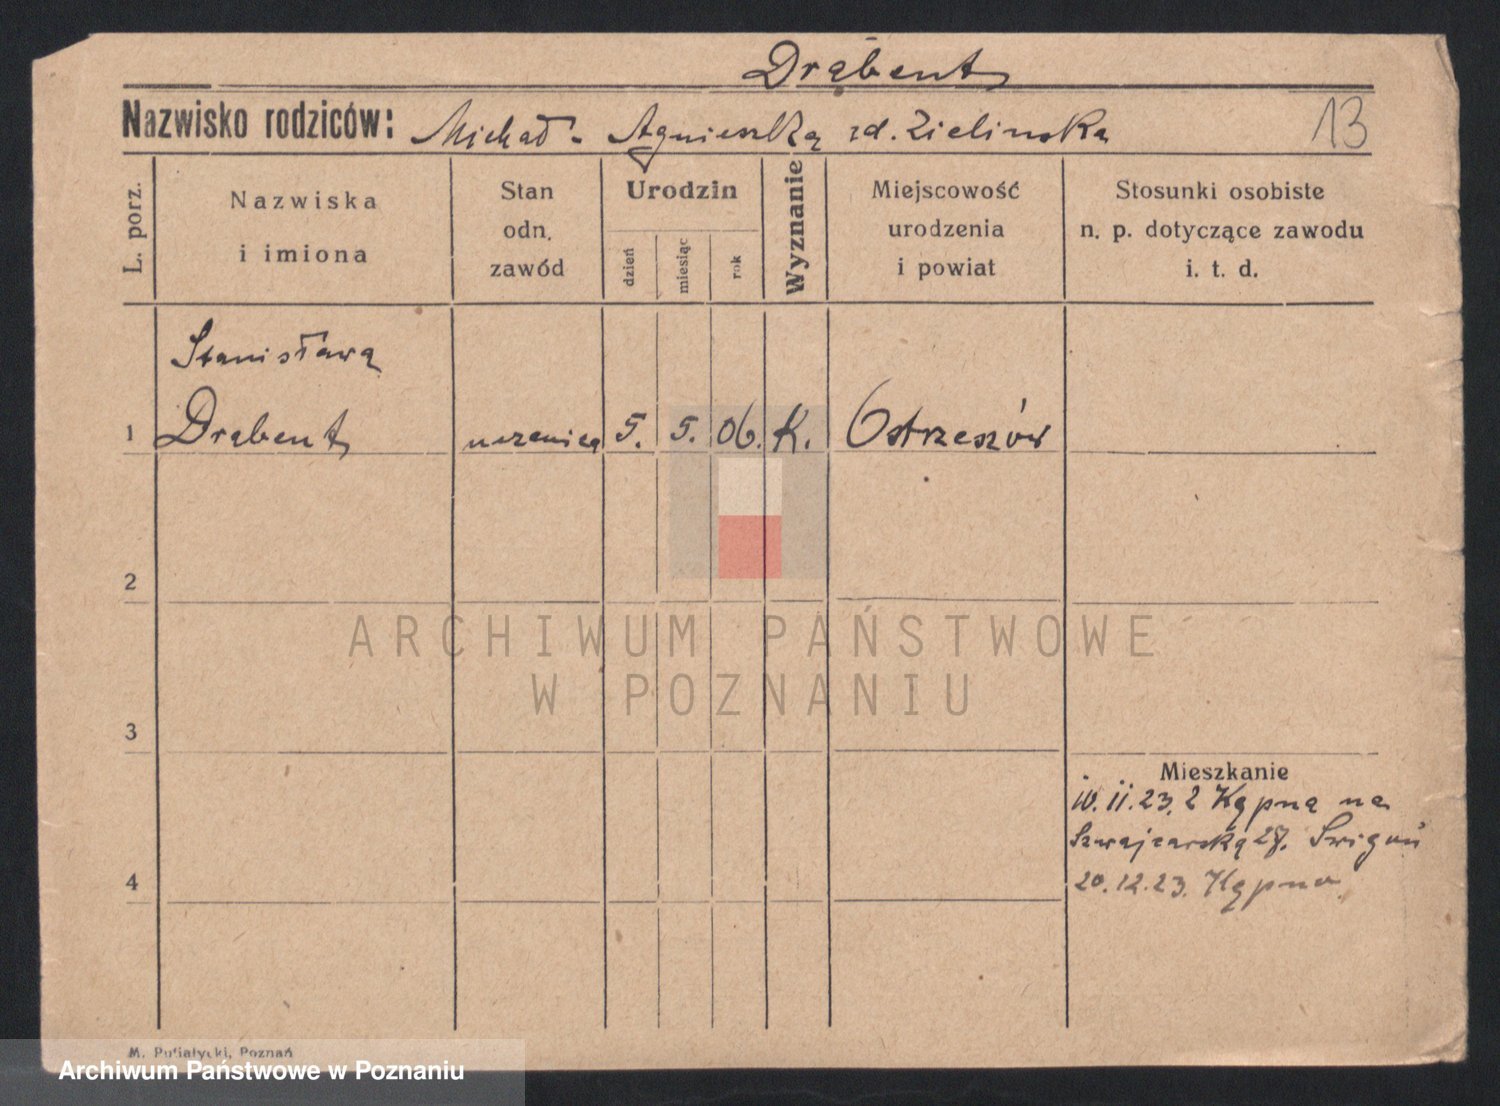 Drabent
Nazwisko rodziców: Michał - Agnieszka zd. Zielinska
13
L. porz.
Nazwiska
i imiona
Stan
odn.
zawód
Urodzin
dzień
miesiąc
rok
Wyznanie
Miejscowość
urodzenia
i powiat
Stosunki osobiste
n. p. dotyczące zawodu
i. t. d.
Stanisława
1 Drabent uczenica 5. 5. 06. K. Ostrzeszów
2
ARCHIWUM PAŃSTWOWE
W POZNANIU
3
Mieszkanie
10.11.23. z Kępna na
Szwajcarską 27.
4
20.12.23. Kępno
M. Putiatycki, Poznań
Archiwum Państwowe w Poznaniu